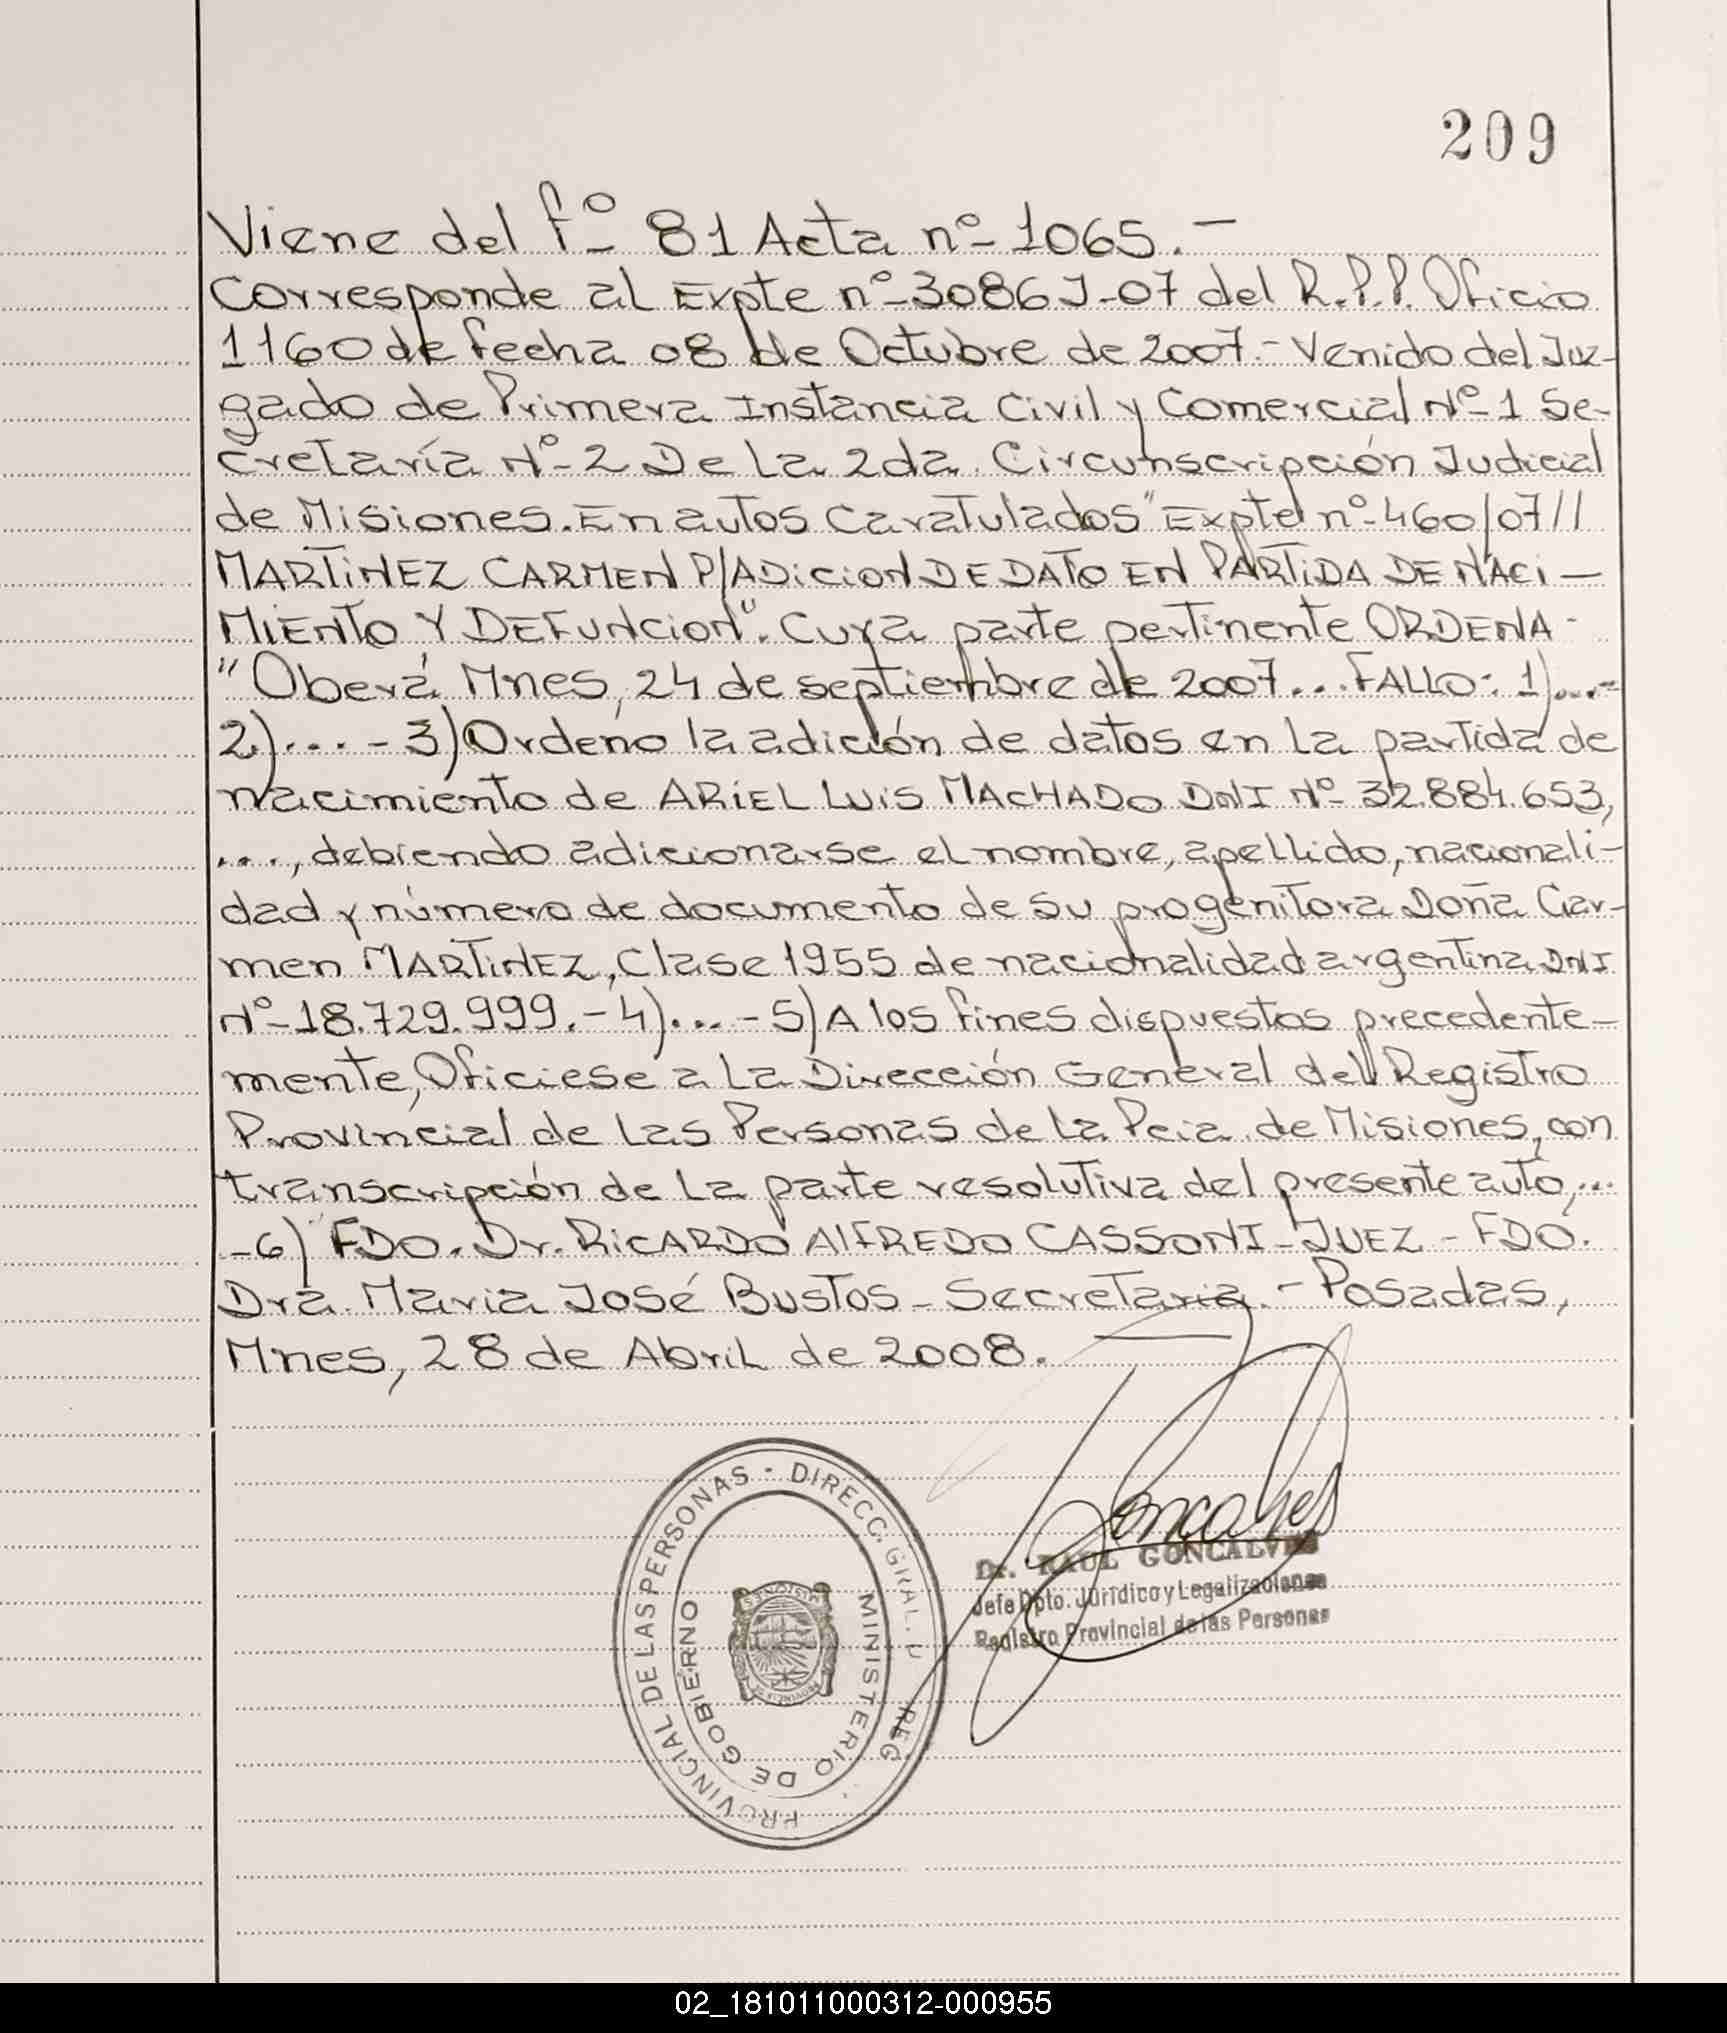 209
Viene del fº 81 Acta nº 1065.-
Corresponde al Expte nº 3086J-07 del R.P.P. Oficio
1160 de fecha 08 de Octubre de 2007.- Venido del Juz-
gado de Primera Instancia Civil y Comercial Nº 1 Se-
cretaría Nº 2 De La 2da. Circunscripción Judicial
de Misiones. En autos Caratulados "Expte nº 460/07//
MARTINEZ CARMEN P/ADICION DE DATO EN PARTIDA DE NACI-
MIENTO Y DEFUNCION". Cuya parte pertinente ORDENA-
"Oberá Mnes, 24 de septiembre de 2007... FALLO: 1)...-
2)...- 3) Ordeno la adición de datos en la partida de
nacimiento de ARIEL LUIS MACHADO DNI Nº 32.884.653,
..., debiendo adicionarse el nombre, apellido, nacionali-
dad y número de documento de su progenitora Doña Car-
men MARTINEZ, Clase 1955 de nacionalidad argentina DNI
Nº 18.729.999.- 4)...- 5) A los fines dispuestos precedente-
mente, Oficiese a La Dirección General del Registro
Provincial de Las Personas de La Pcia. de Misiones, con
transcripción de La parte resolutiva del presente auto,...
-6) FDO. Dr. RICARDO AlFREDO CASSONI-JUEZ - FDO.
Dra. Maria José Bustos - Secretaria.- Posadas,
Mnes, 28 de Abril de 2008.
Goncalves
Dr. RAUL GONCALVES
Jefe Dpto. Jurídico y Legalizaciones
Registro Provincial de las Personas
DIRECC. GRAL. REG
PROVINCIAL DE LAS PERSONAS -
MINISTERIO DE GOBIERNO
MISIONES
02_181011000312-000955